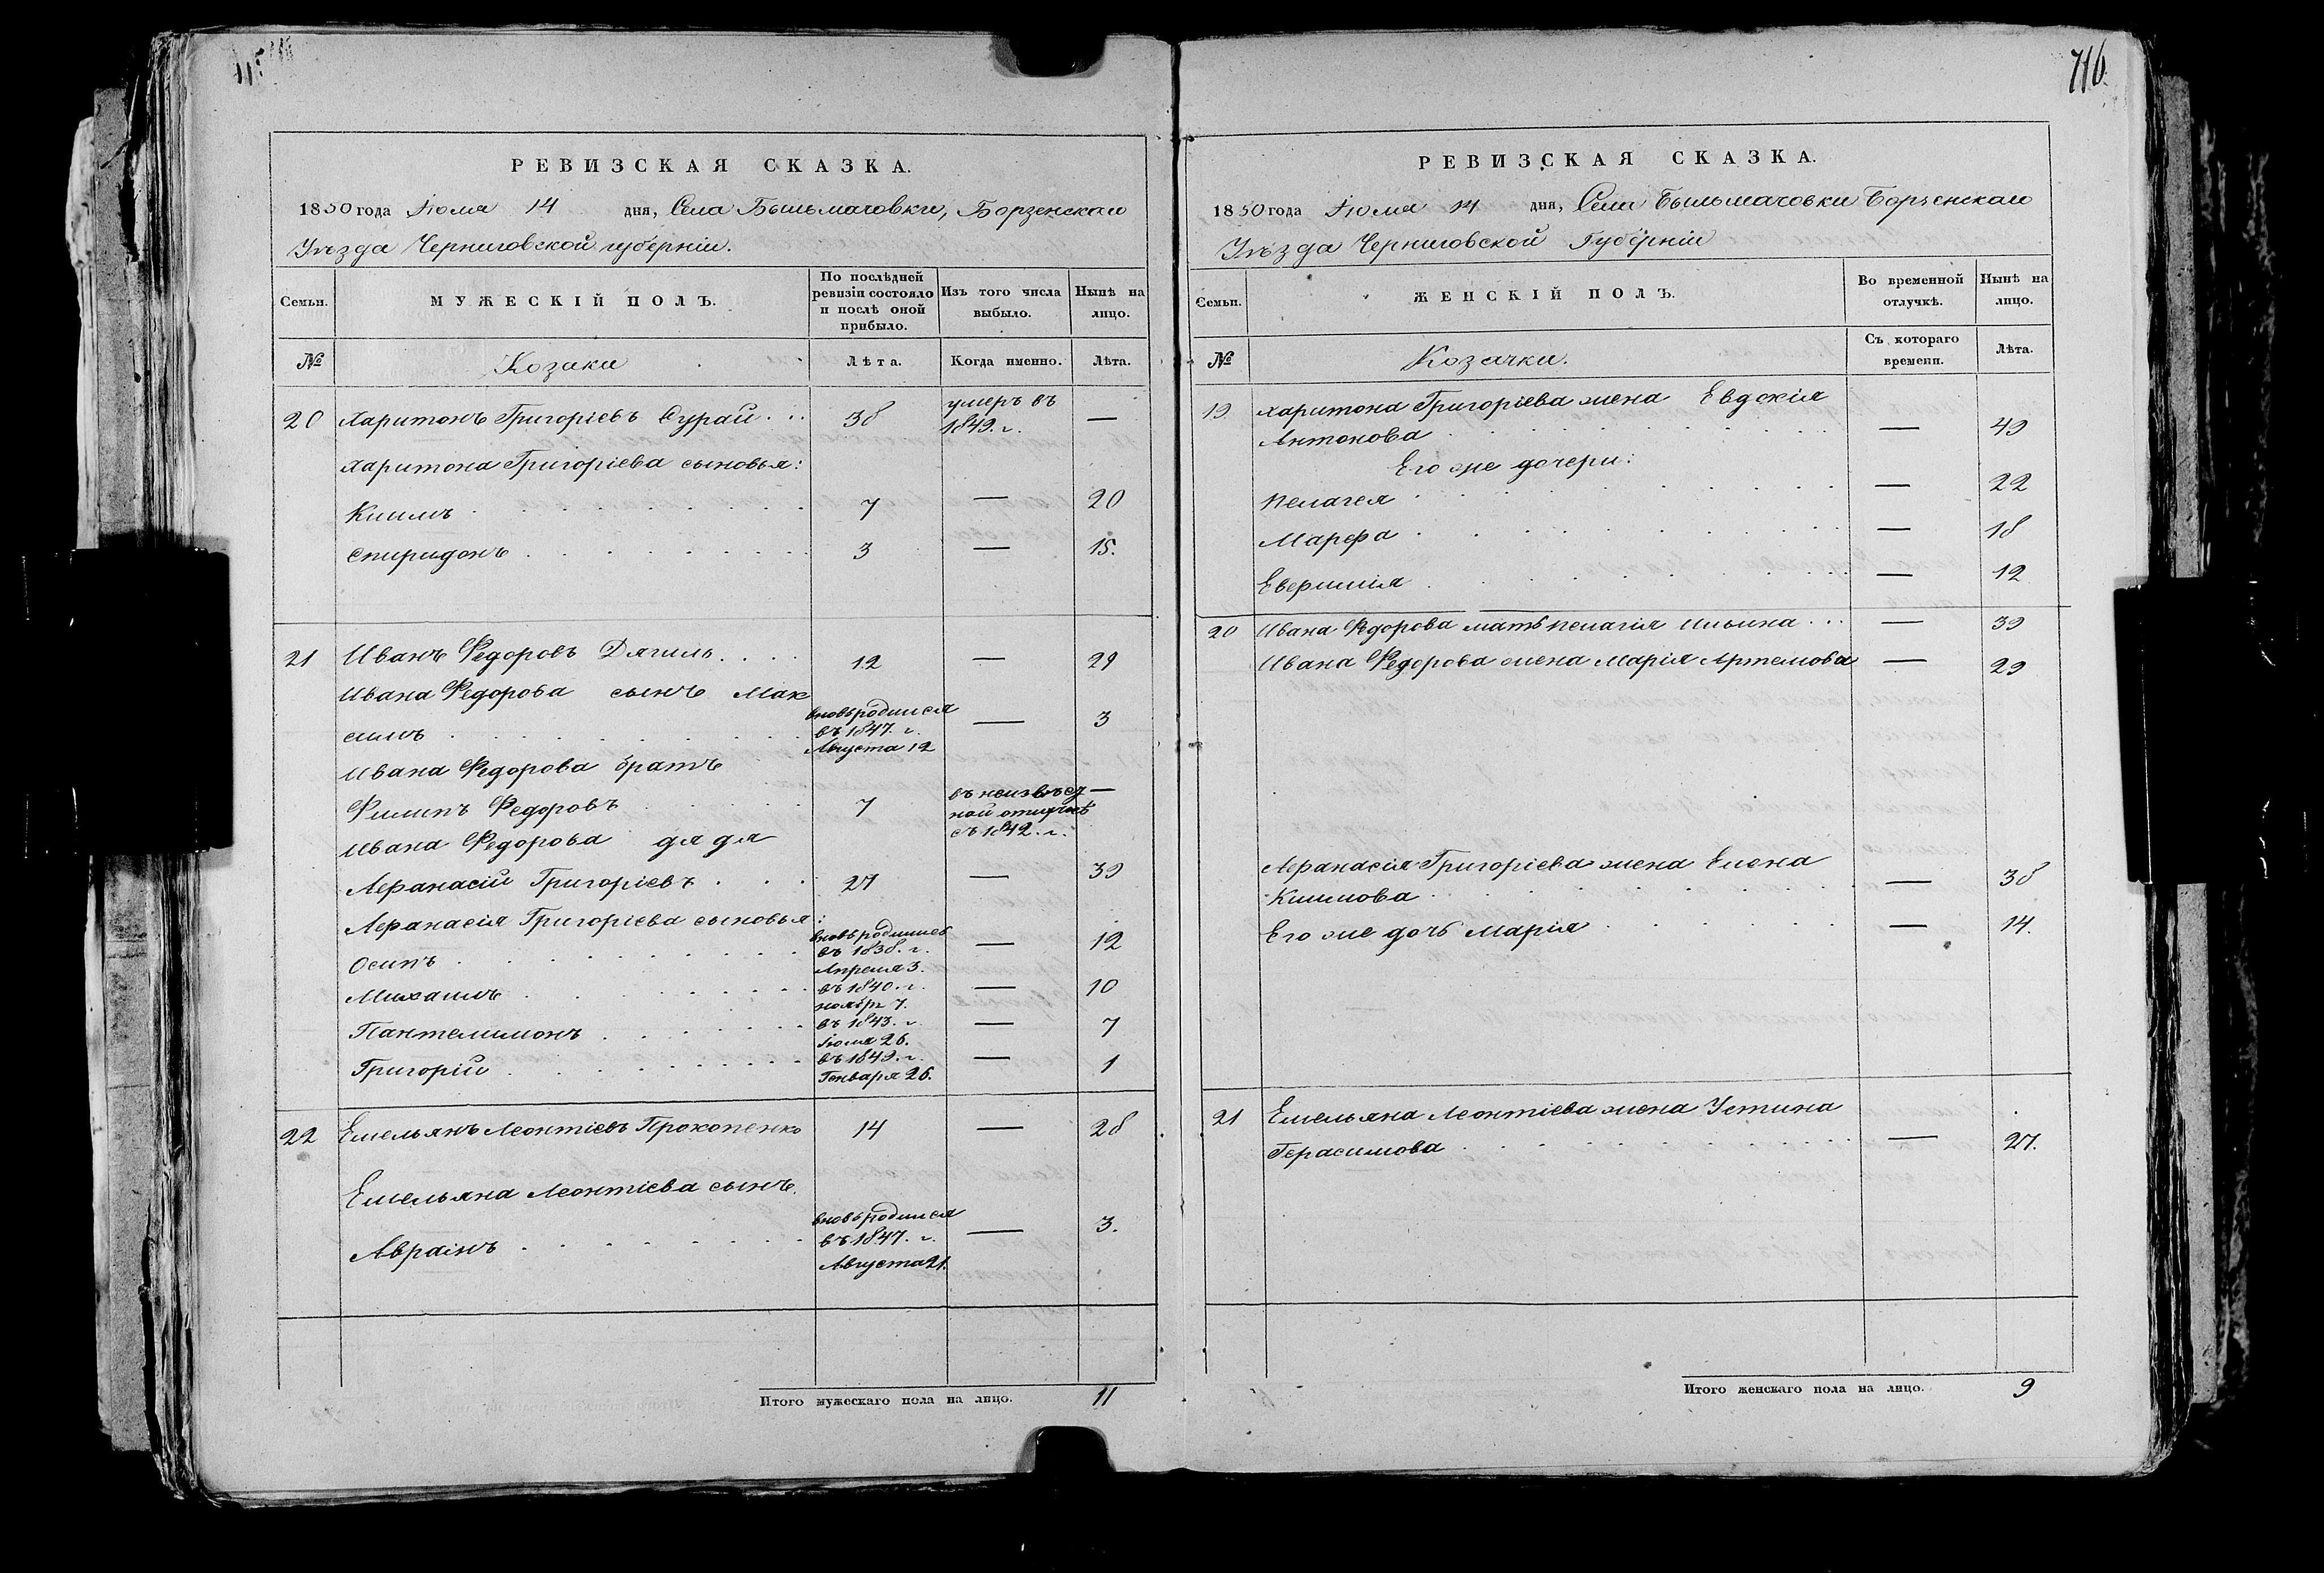 716.
РЕВИЗСКАЯ СКАЗКА.
1850 года Іюля 14 дня, Села Быльмачовки, Борзенскаго
Уѣзда Черниговской губерніи.
Семьи. МУЖЕСКІЙ ПОЛЪ. По послѣдней ревизіи состояло и послѣ оной прибыло. Изъ того числа выбыло. Нынѣ на лицо.
№ Козаки Лѣта. Когда именно. Лѣта.
20 Харитонъ Григоріевъ Сурай 38 умеръ въ 1849. г. —
Харитона Григоріева сыновья:
Климъ 7 — 20
Спиридонъ 3 — 15.
21 Иванъ Федоровъ Дягиль 12 — 29
Ивана Федорова сынъ Мак
симъ вновьродился въ 1847. г. Августа 12 — 3
Ивана Федорова братъ
Филипъ Федоровъ 7 въ неизвѣст ной отлучкѣ съ 1842. г. —
Ивана Федорова дядя
Афанасій Григоріевъ 27 — 39
Афанасія Григоріева сыновья:
Осипъ вновьродились въ 1838. г. Апреля 3. — 12
Михаилъ въ 1840. г. ноябр 7. — 10
Пантелимонъ въ 1843. г. Іюля 26. — 7
Григорій въ 1849. г. Генваря 26. — 1
22 Емельянъ Леонтіевъ Прокопенко 14 — 28
Емельяна Леонтіева сынъ.
Авраімъ вновьродился въ 1847. г. Августа 21. — 3.
Итого мужескаго пола на лицо. 11
РЕВИЗСКАЯ СКАЗКА.
1850 года Іюля 14 дня, Села Быльмачовки Борзенскаго
Уѣзда Черниговской Губерніи
Семьи. ЖЕНСКІЙ ПОЛЪ. Во временной отлучкѣ. Нынѣ на лицо.
№ Козачки. Съ котораго времени. Лѣта.
19 Харитона Григоріева жена Евдокія
Антонова — 49
Его же дочери:
Пелагея — 22
Марфа — 18
Евфимія — 12
20 Ивана Федорова мать Пелагія Ильина — 39
Ивана Федорова жена Марія Артемова — 29
Афанасія Григоріева жена Елена
Климова — 38
Его же дочь Марія — 14.
21 Емельяна Леонтіева жена Устина
Герасимова — 27.
Итого женскаго пола на лицо. 9